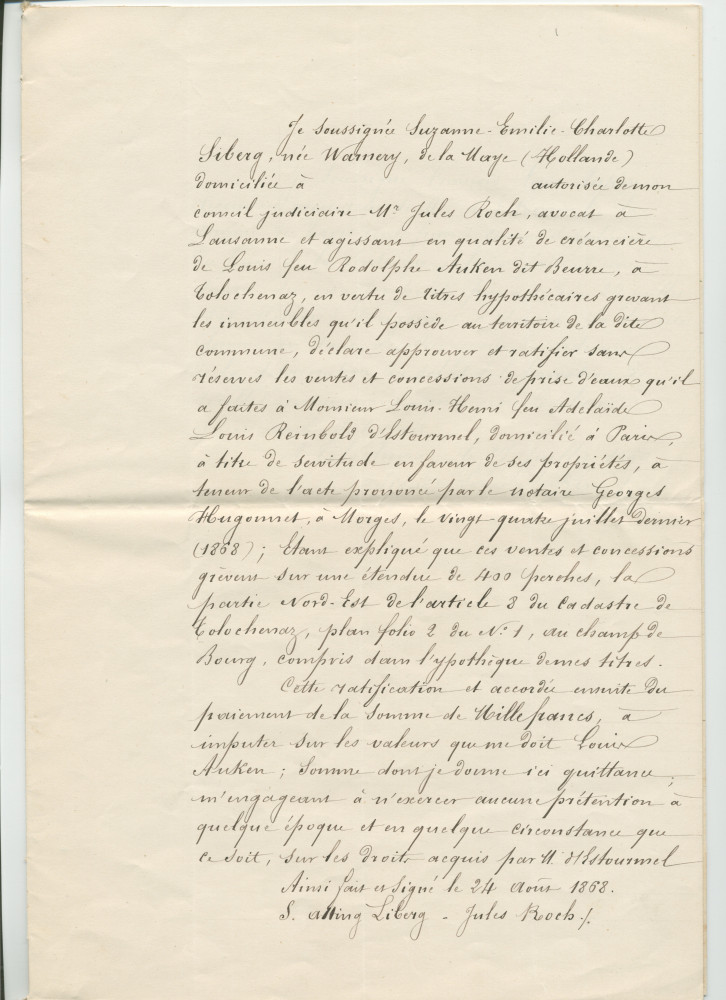 Je soussignée Suzanne-Emilie-Charlotte
Siberg, née Warnery, de la Haye (Hollande)
domiciliée à autorisée de mon
conseil judiciaire Mr Jules Roch, avocat à
Lausanne et agissant en qualité de créancière
de Louis feu Rodolphe Auken dit Beurre, à
Tolochenaz, en vertu de titres hypothécaires grevant
les immeubles qu'il possède au territoire de la dite
commune, déclare approuver et ratifier sans
réserves les ventes et concessions de prise d'eaux qu'il
a faites à Monsieur Louis-Henri feu Adelaïde
Louis Reinbold d'Estourmel, domicilié à Paris,
à titre de servitude en faveur de ses propriétés, à
teneur de l'acte prononcé par le notaire Georges
Hugonnet, à Morges, le vingt-quatre juillet dernier
(1868); Etant expliqué que ces ventes et concessions
grèvent sur une étendue de 400 perches, la
partie Nord-Est de l'article 3 du Cadastre de
Tolochenaz, plan folio 2 du No 1, au champ de
Bourg, compris dans l'ypothèque de mes titres.
Cette ratification et accordée ensuite du
paiement de la somme de Mille francs, à
imputer sur les valeurs que me doit Louis
Auken; Somme dont je donne ici quittance;
m'engageant à n'exercer aucune prétention à
quelque époque et en quelque circonstance que
ce soit, sur les droits acquis par M. d'Estourmel
Ainsi fait et signé le 24 Août 1868.
S. Siberg - Jules Roch ./.